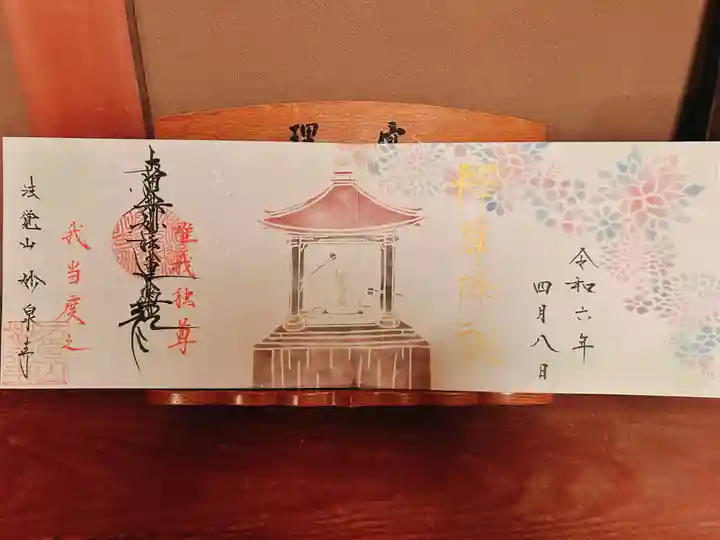 令和六年
四月八日
釈尊降誕
唯我独尊
南無妙法蓮華経
我当度之
法覚山 妙泉寺